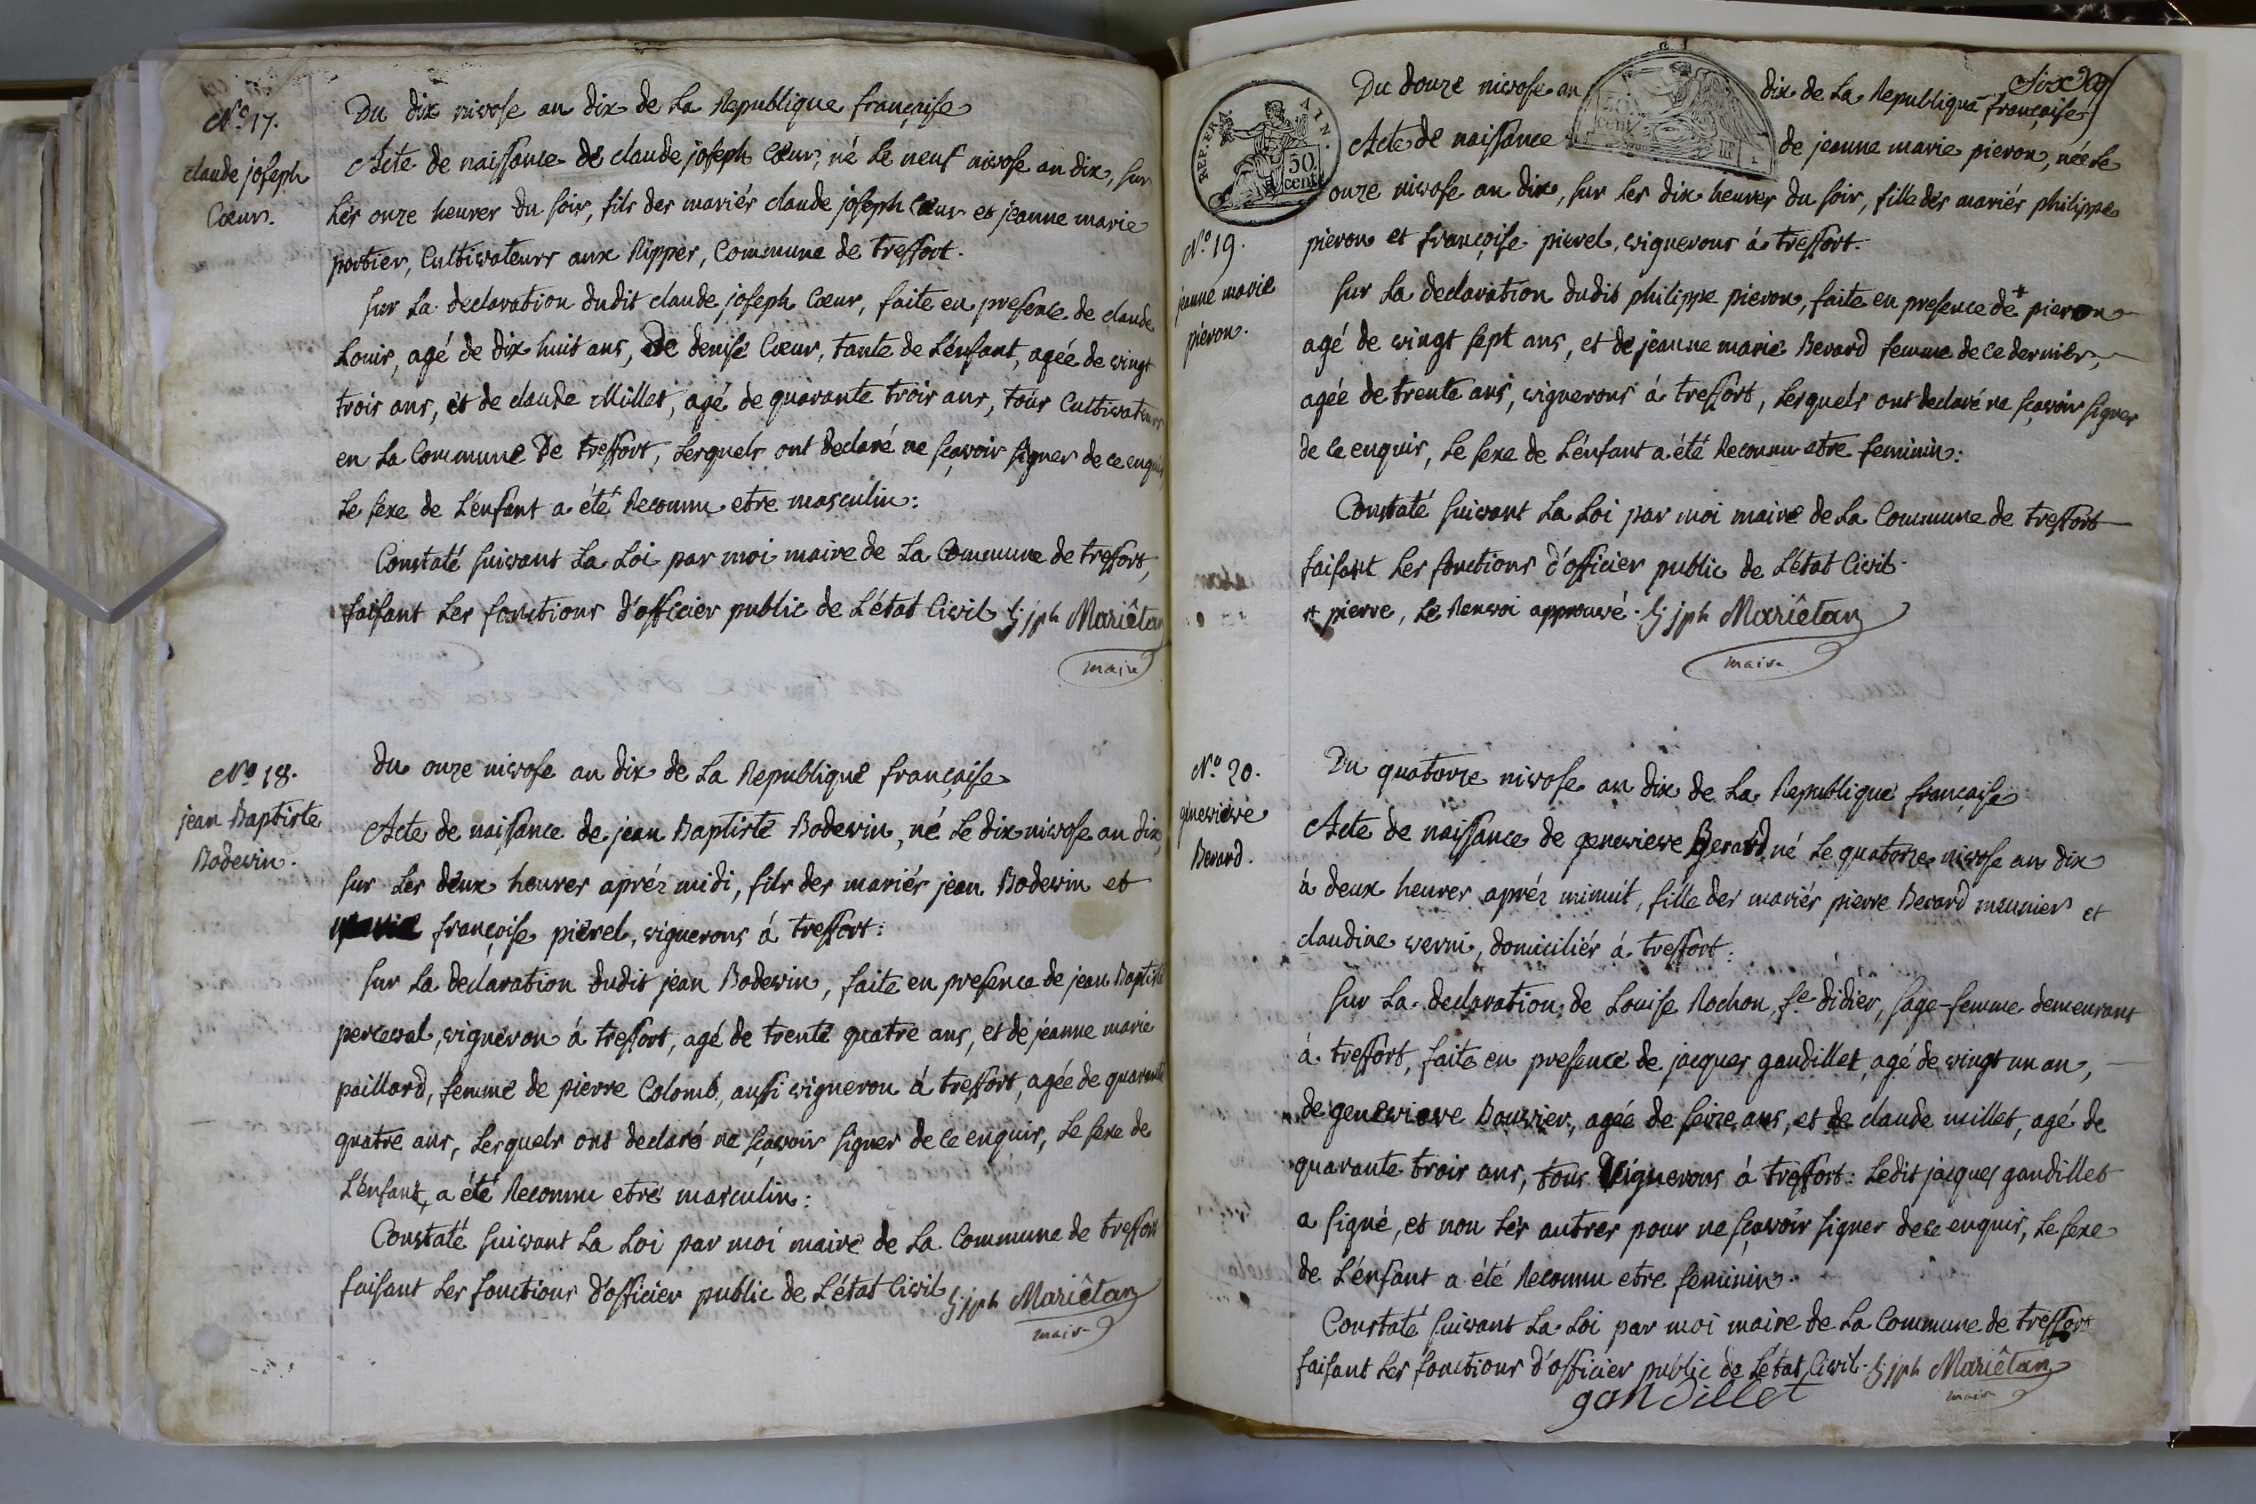 N.º 17.
claude joseph
Cœur.
Du dix nivose an dix de La Republique françaife
Acte de naissance de claude joseph Cœur, né Le neuf nivose an dix, sur
Les onze heures du soir, fils des mariés claude joseph Cœur et jeanne marie
portier, Cultivateurs aux Rippes, Commune de treffort.
sur La declaration dudit claude joseph Cœur, faite en presence de claude
Louis, agé de dix huit ans, De denise Cœur, tante de L'enfant, agée de vingt
trois ans, et de claude Millet, agé de quarante trois ans, tous Cultivateurs
en La Commune De treffort, Lesquels ont declaré ne sçavoir signer de ce enquis,
Le sexe de L'enfant a été Reconnu etre masculin:
Constaté suivant La Loi par moi maire de La Commune de treffort,
faisant Les fonctions d'officier public de L'état Civil jph Mariêtan
maire
N.º 18.
jean Baptiste
Bodevin.
Du onze nivose an dix de La Republique française
Acte de naissance de jean Baptiste Bodevin, né Le dix nivose an dix,
sur Les deux heures aprés midi, fils des mariés jean Bodevin et
françoise pierel, vignerons á treffort:
sur La declaration dudit jean Bodevin, faite en presence de jean Baptiste
perceval, vigneron á treffort, agé de trente quatre ans, et de jeanne marie
paillard, femme de pierre Colomb, aussi vigneron á treffort, agée de quarante
quatre ans, Lesquels ont declaré ne sçavoir signer de ce enquis, Le sexe de
L'enfant a été Reconnu etre masculin:
Constaté suivant La Loi par moi maire de La Commune de treffort
faisant Les fonctions d'officier public de L'état Civil jph Mariêtan
maire
REP. FRA AIN.
50
cent
Six
Du douze nivose an dix de La Republique française
Acte de naissance de jeanne marie pieron, née Le
onze nivose an dix, sur Les dix heures du soir, fille des mariés philippe
pieron et françoise pierel, vignerons á treffort.
N.º 19.
jeanne marie
pieron.
sur La declaration dudit philippe pieron, faite en presence de + pieron
agé de vingt sept ans, et de jeanne marie Berard femme de ce dernier,
agée de trente ans, vignerons á treffort, Lesquels ont declaré ne sçavoir signer
de ce enquis, Le sexe de L'enfant a été Reconnu etre feminin:
Constaté suivant La Loi par moi maire de La Commune de treffort
faisant Les fonctions d'officier public de L'état Civil.
+ pierre, Le Renvoi approuvé. jph Mariêtan
maire
N.º 20.
genevieve
Berard.
Du quatorze nivose an dix de La Republique française
Acte de naissance de genevieve Berard né Le quatorze nivose an dix
á deux heures aprés minuit, fille des mariés pierre Berard meunier et
claudine verni, domiciliés á treffort:
sur La declaration de Louise Rochon, fe didier, sage-femme demeurant
á treffort, faite en presence de jacques gandillet, agé de vingt un an,
de genevieve Bouvier, agée de seize ans, et de claude millet, agé de
quarante trois ans, tous Vignerons á treffort: Ledit jacques gandillet
a signé, et non Les autres pour ne sçavoir signer de ce enquis, Le sexe
de L'enfant a été Reconnu etre feminin.
Constaté suivant La Loi par moi maire de La Commune de treffort
faisant Les fonctions d'officier public de L'état Civil. jph Mariêtan
gandillet maire